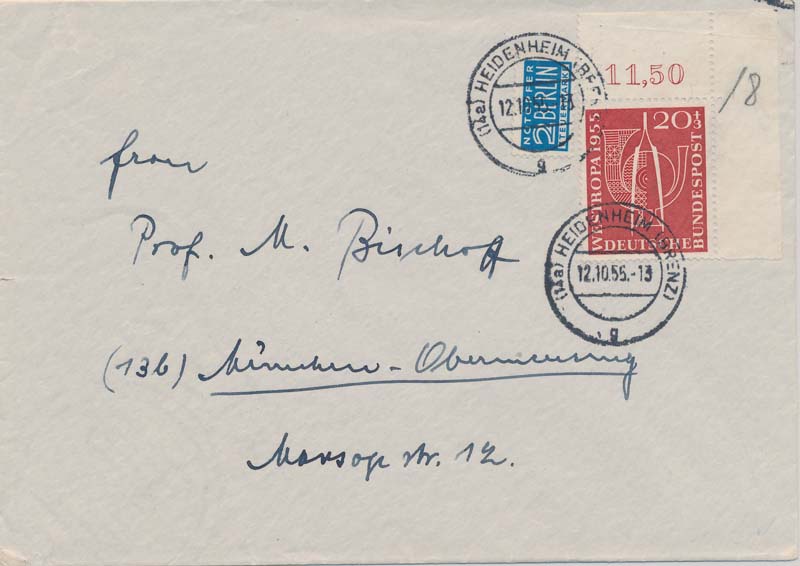 (14a) HEIDENHEIM (BRENZ)
12.10.55.-13
g
NOTOPFER
2 BERLIN
STEUERMARKE
11,50
/8
20+3
WESTROPA 1955
DEUTSCHE
BUNDESPOST
(14a) HEIDENHEIM (BRENZ)
12.10.55.-13
g
Frau
Prof. M. Bischoff
(13b) München-Obermenzing
Marsop str. 12.